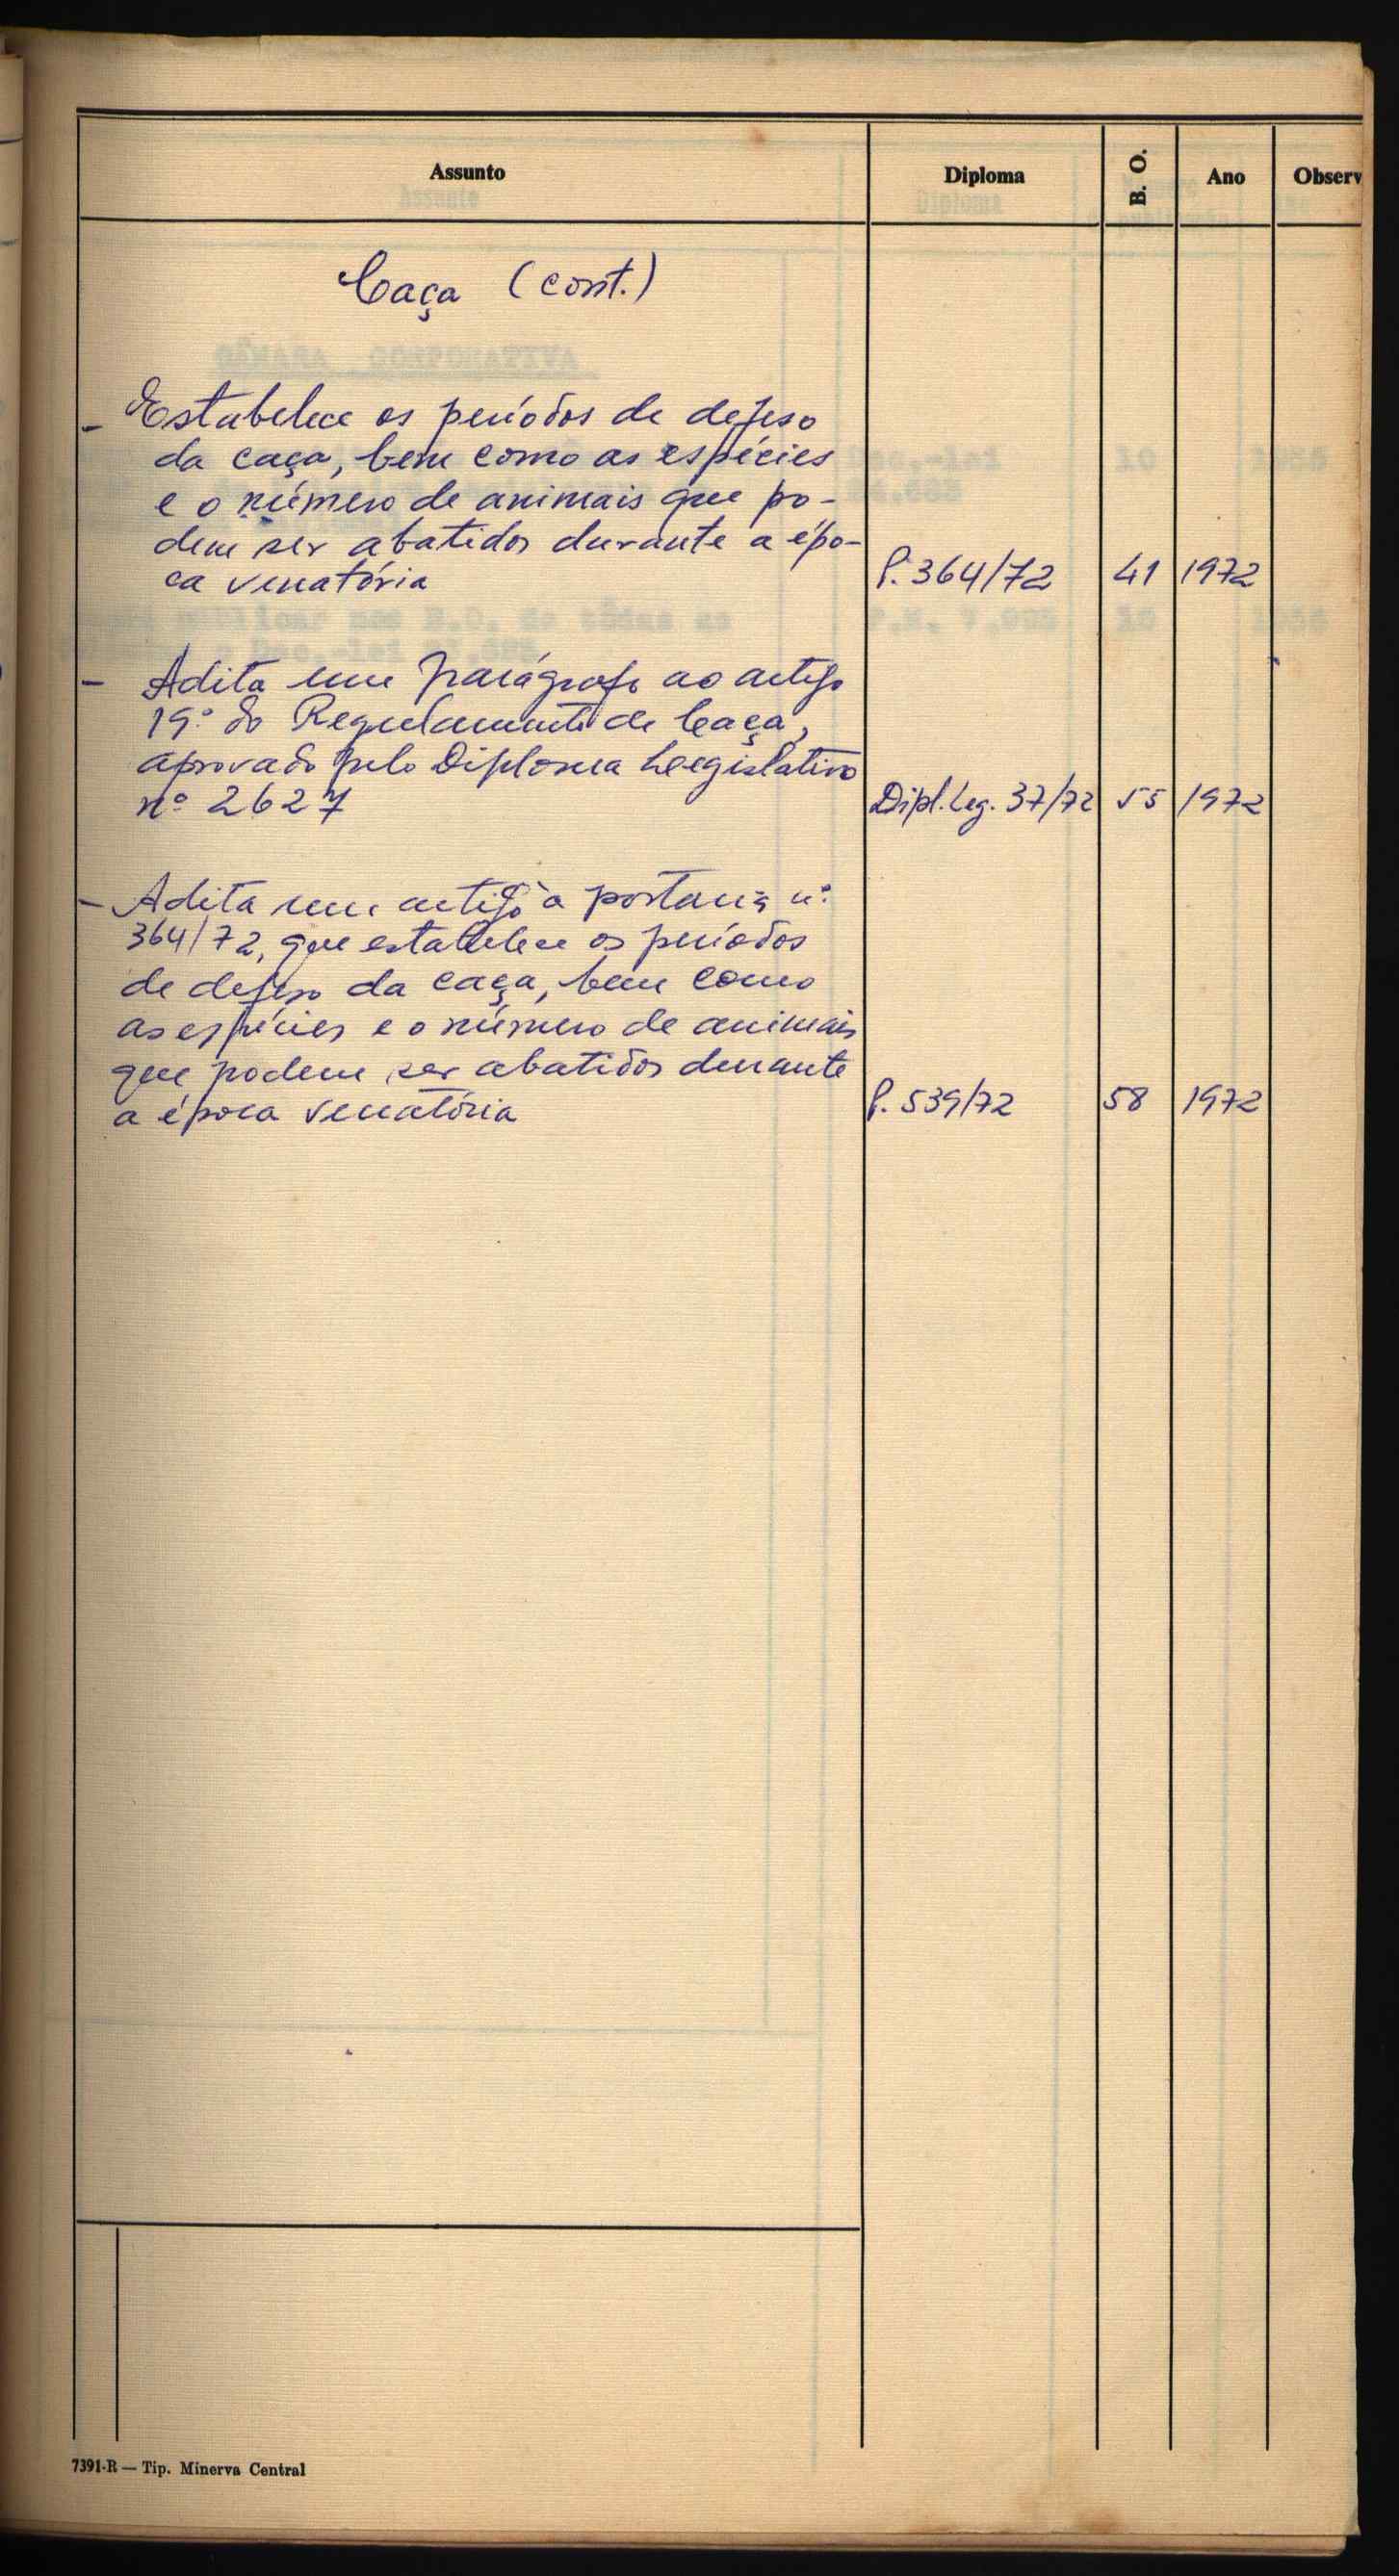 Assunto Diploma B. O. Ano Observ
Caça (cont.)
- Estabelece os períodos de defeso
da caça, bem como as espécies
e o número de animais que po-
dem ser abatidos durante a épo-
ca venatória P. 364/72 41 1972
- Adita um parágrafo ao artigo
19.º do Regulamento de Caça,
aprovado pelo Diploma Legislativo
nº 2627 Dipl. Leg. 37/72 55 1972
- Adita um artigo à portaria n.º
364/72, que estabelece os períodos
de defeso da caça, bem como
as espécies e o número de animais
que podem ser abatidos durante
a época venatória P. 539/72 58 1972
7391-R — Tip. Minerva Central